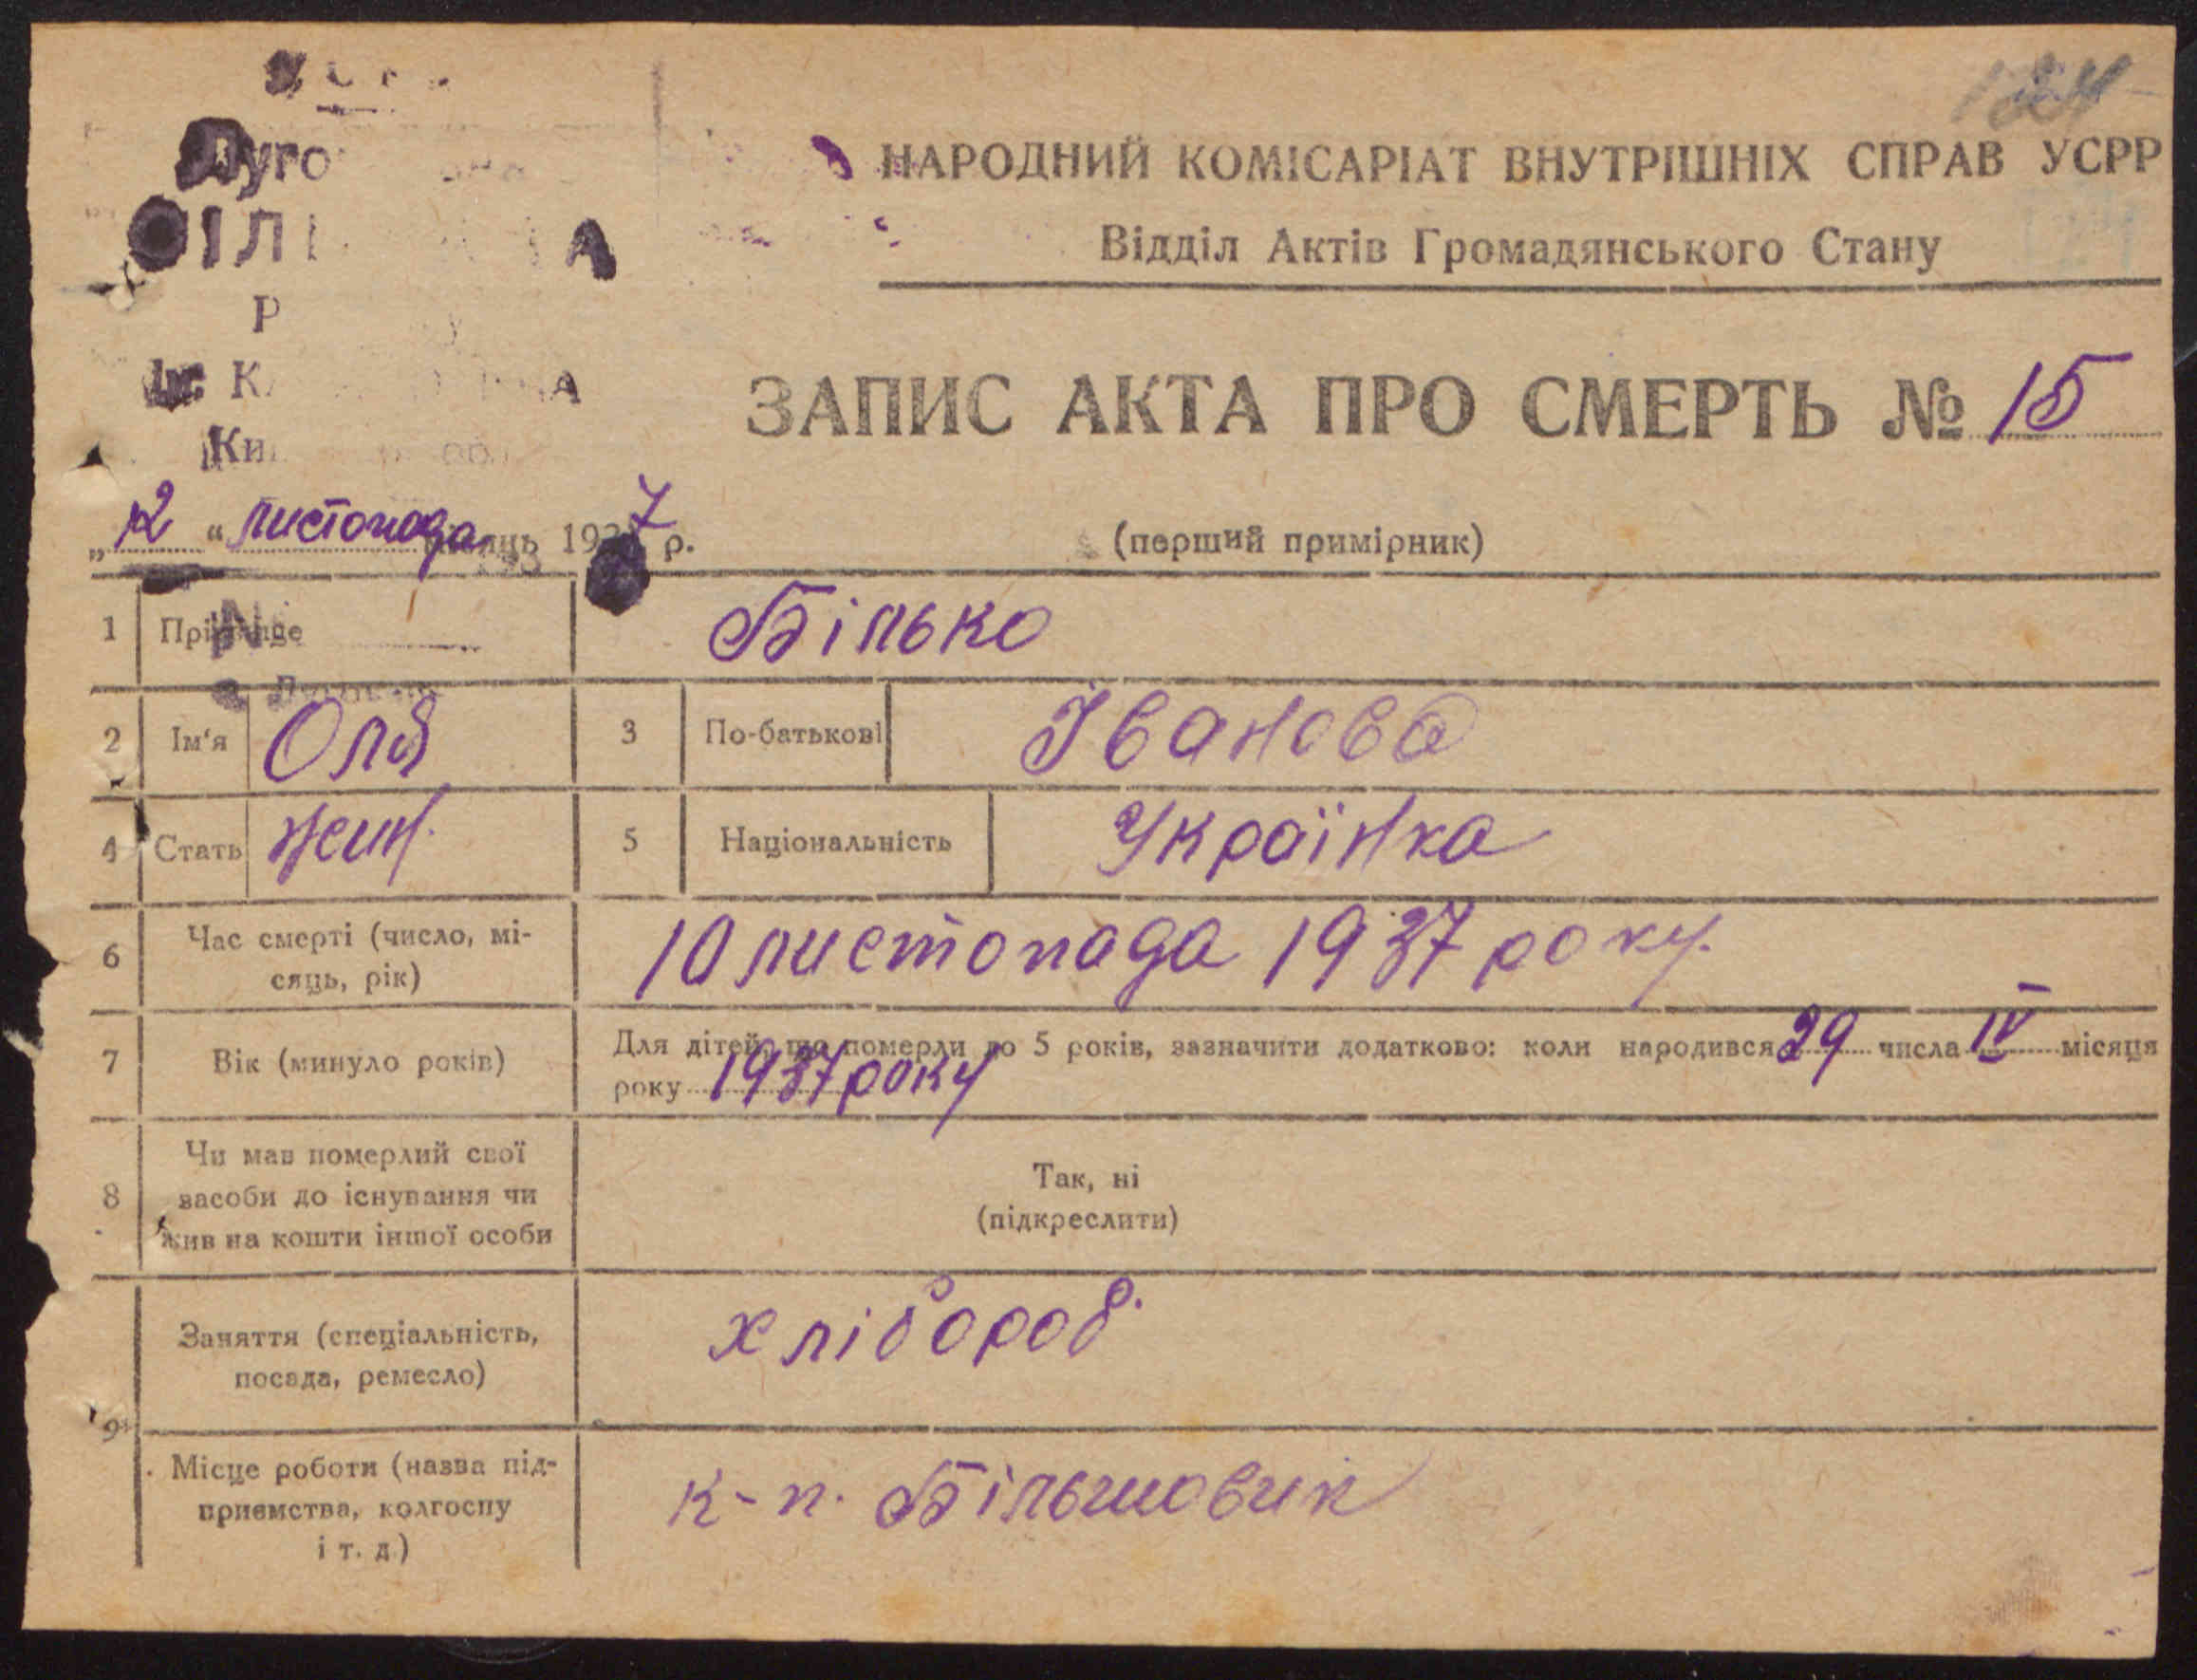 НАРОДНИЙ КОМІСАРІАТ ВНУТРІШНІХ СПРАВ УСРР
Відділ Актів Громадянського Стану
ЗАПИС АКТА ПРО СМЕРТЬ № 15
„12“ листопада місяць 1937 р.
(перший примірник)
1 Прізвище Білько
2 Ім'я Оля 3 По-батькові Іванова
4 Стать жін. 5 Національність Українка
6 Час смерті (число, мі-
сяць, рік) 10 листопада 1937 року.
7 Вік (минуло років) Для дітей, що померли до 5 років, зазначити додатково: коли народився 29 числа IV місяця
року 1937 року
8 Чи мав померлий свої
засоби до існування чи
жив на кошти іншої особи
Так, ні
(підкреслити)
9
Заняття (спеціальність,
посада, ремесло)
хлібороб.
Місце роботи (назва під-
приємства, колгоспу
і т. д.)
к-п. Більшовик